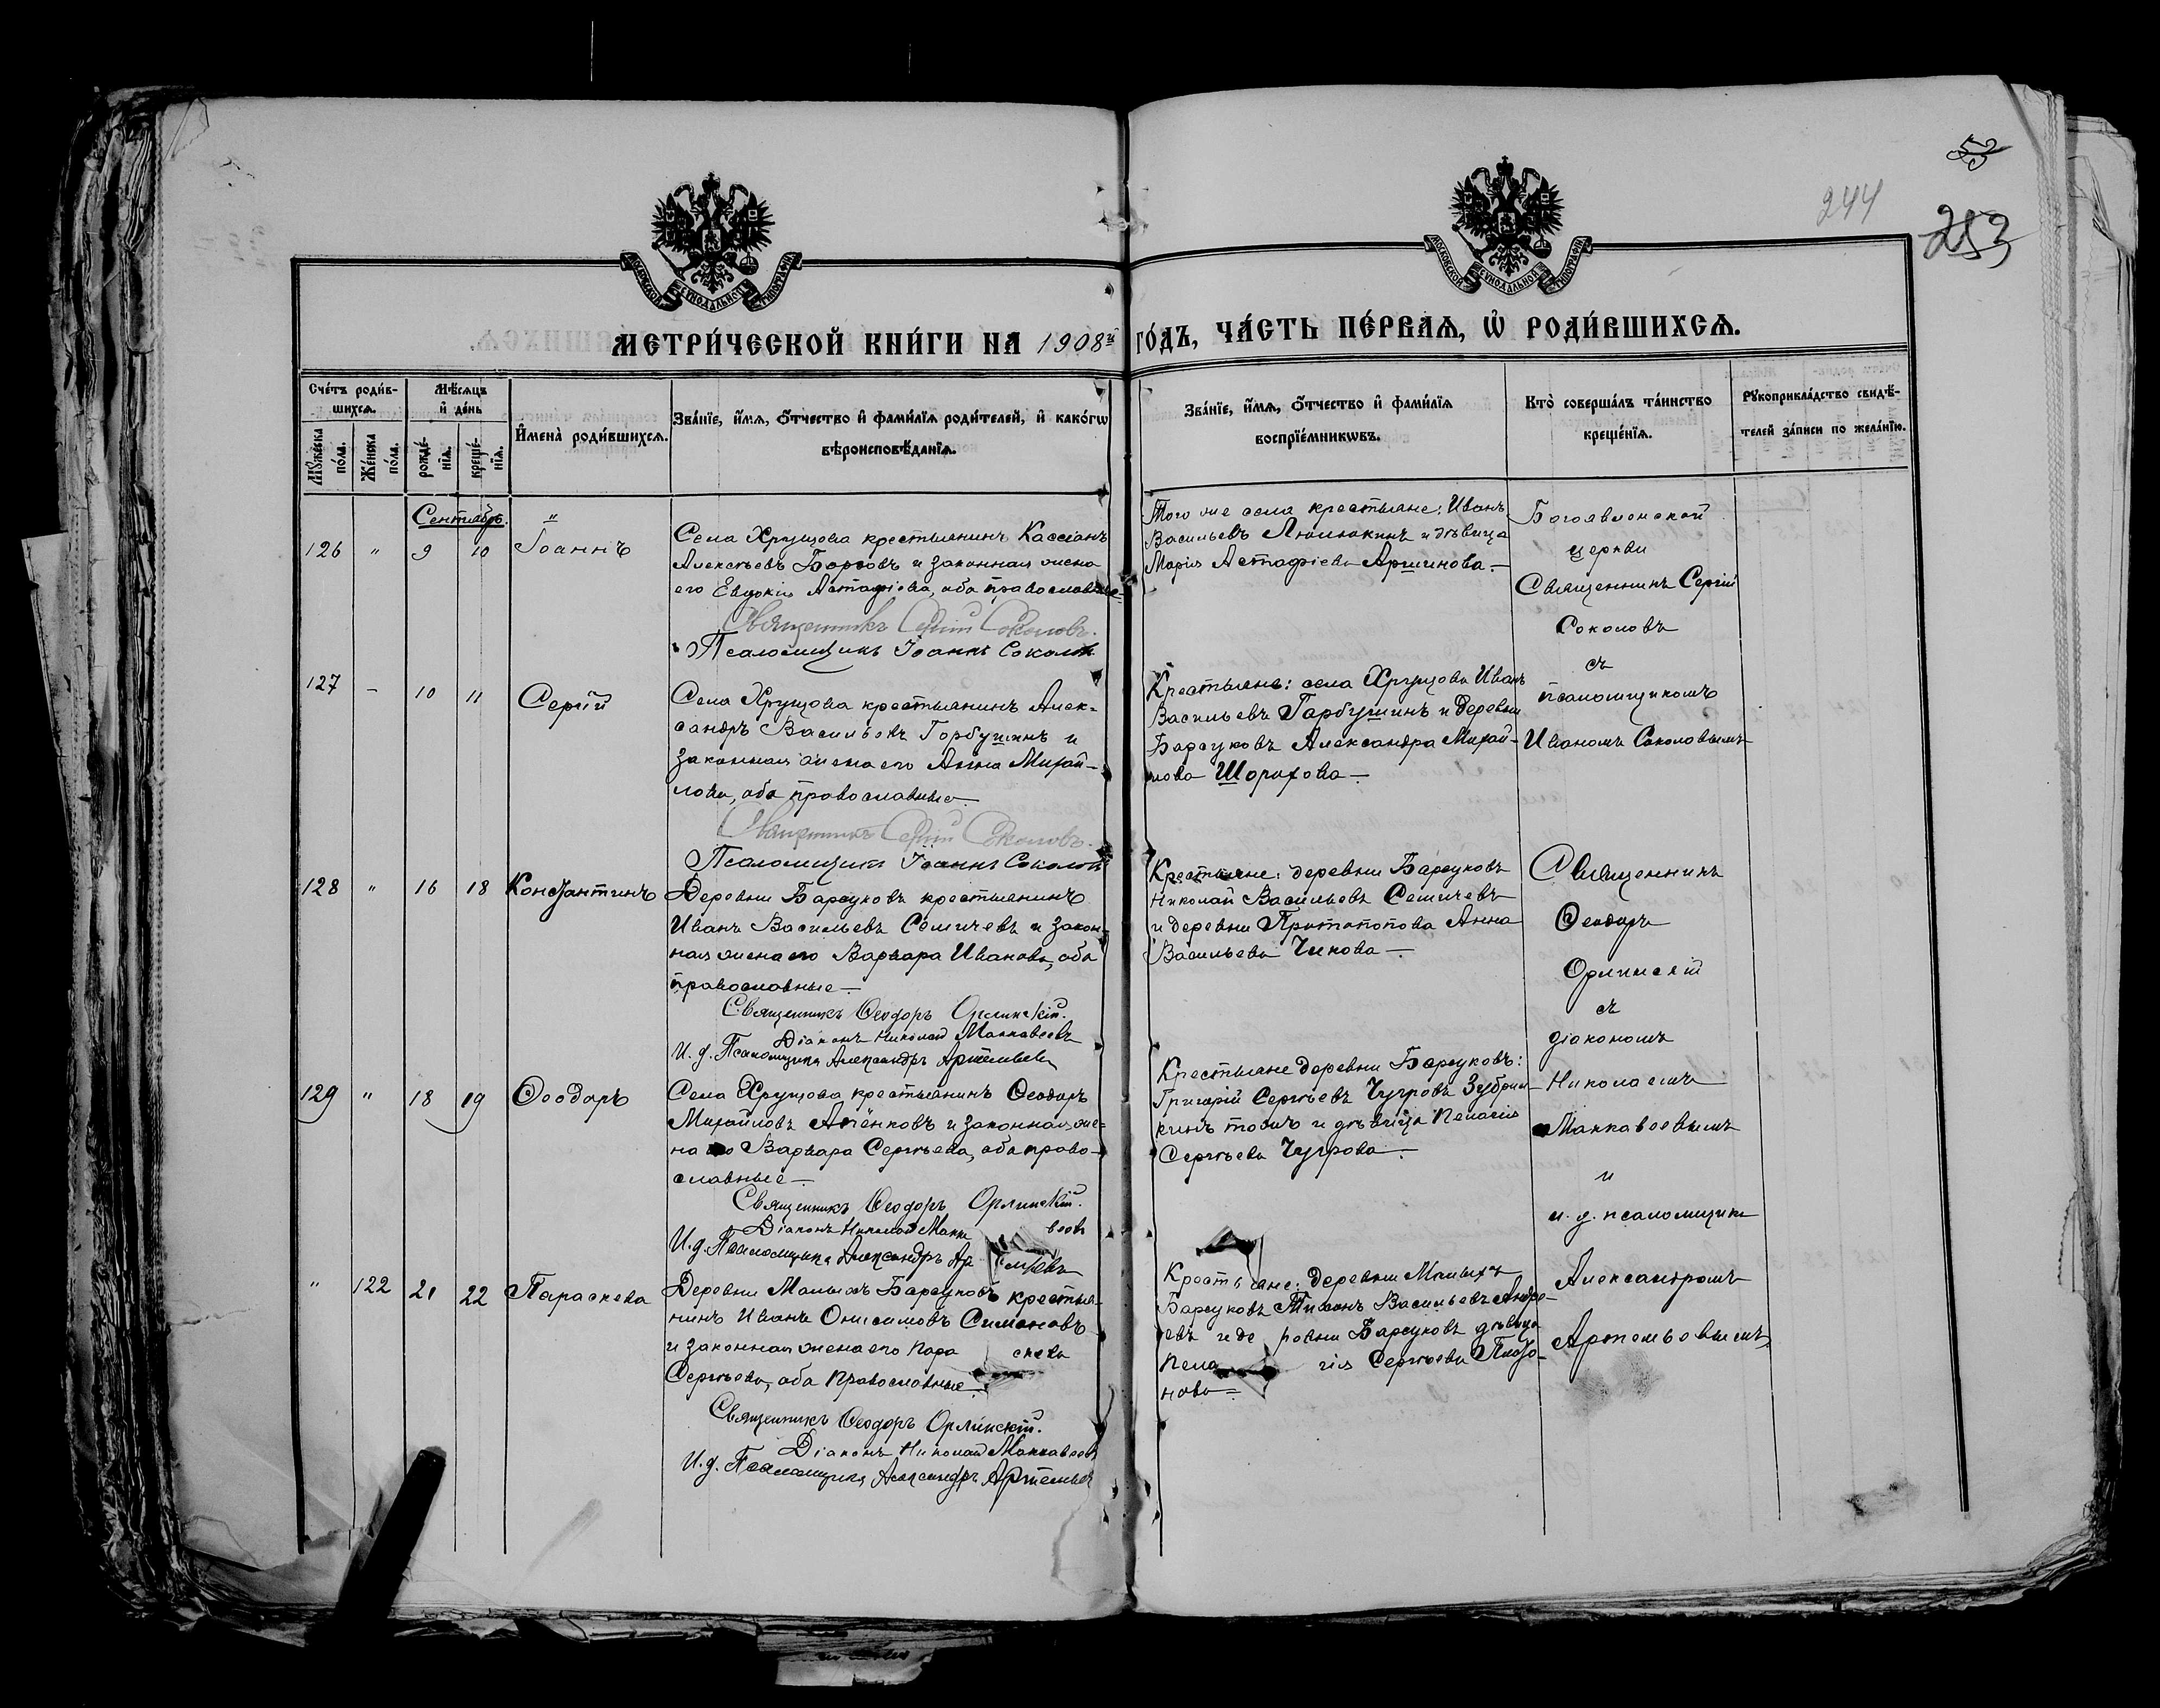 53
244
253
МОСКОВСКОЙ СѴНОДАЛЬНОЙ ТИПОГРАФІИ
МОСКОВСКОЙ СѴНОДАЛЬНОЙ ТИПОГРАФІИ
МЕТРИ́ЧЕСКОЙ КНИ́ГИ НА 1908й ГО́ДЪ, ЧА́СТЬ ПЕ́РВАѦ, Ѡ҆ РОДИ́ВШИХСѦ.
Сче́тъ роди́в-
шихсѧ.
Мꙋ́жеска по́ла.
Же́нска по́ла.
Мѣ́сѧцъ
и҆ де́нь
рожде́-
нїѧ.
креще́-
нїѧ.
И҆мена̀ роди́вшихсѧ.
Зва́нїе, и҆́мѧ, ѻ҆́тчество и҆ фами́лїѧ роди́телей, и҆ како́гѡ
вѣроисповѣ́данїѧ.
Зва́нїе, и҆́мѧ, ѻ҆́тчество и҆ фами́лїѧ
воспрїе́мникѡвъ.
Кто̀ соверша́лъ та́инство
креще́нїѧ.
Рꙋкоприкла́дство свидѣ́-
телей за́писи по жела́нїю.
Сентябрь.
126 " 9 10 Іоаннъ
Села Хрущова крестьянинъ Кассіанъ
Алексѣевъ и законная жена
его Евдокія Астафіева, оба православные
Священникъ Сергій Соколовъ.
Псаломщикъ Іоаннъ Соколовъ
Того же села крестьяне: Иванъ
Васильевъ и дѣвица
Марія Астафіева Аршинова.—
Богоявленской
церкви
Священникъ Сергій
Соколовъ
съ
псаломщикомъ
Иваномъ Соколовымъ
127 – 10 11 Сергій
Села Хрущова крестьянинъ Алек-
сандръ Васильевъ Горбушинъ и
законная жена его Анна Михай-
лова, оба православные—
Священникъ Сергій Соколовъ.
Псаломщикъ Іоаннъ Соколовъ
Крестьяне: села Хрущова Иванъ
Васильевъ Горбушинъ и деревни
Барсуковъ Александра Михай-
лова Шорохова—
128 " 16 18 Константинъ
Деревни Барсуковъ крестьянинъ
Иванъ Васильевъ Семичевъ и закон-
ная жена его Варвара Иванова, оба
православные—
Священникъ Ѳеодоръ Орлинскій.
Діаконъ Николай Маккавеевъ
И. д. Псаломщика Александръ Артемьевъ
Крестьяне: деревни Барсуковъ
Николай Васильевъ Семичевъ
и деревни Протопопова Анна
Васильева Чикова—
Священникъ
Ѳеодоръ
Орлинскій
съ
діакономъ
Николаемъ
Маккавеевымъ
и
и. д. псаломщика
Александромъ
Артемьевымъ
129 " 18 19 Ѳеодоръ
Села Хрущова крестьянинъ Ѳеодоръ
Михайловъ и законная же-
на его Варвара Сергѣева, оба право-
славные—
Священникъ Ѳеодоръ Орлинскій.
Діаконъ Николай Макка веевъ
И. д. Псаломщика Александръ Ар темьевъ
Крестьяне деревни Барсуковъ:
Григорій Сергѣевъ Чугровъ Зубрил-
кинъ тожъ и дѣвица Пелагія
Сергѣева Чугрова—
" 122 21 22 Параскева
Деревни Малыхъ Барсуковъ крестья-
нинъ Иванъ Онисимовъ Симоновъ
и законная жена его Пара скева
Сергѣева, оба православные—
Священникъ Ѳеодоръ Орлинскій.
Діаконъ Николай Маккавеевъ
И. д. Псаломщика Александръ Артемьевъ
Крестьяне: деревни Малыхъ
Барсуковъ Тихонъ Васильевъ Андре-
евъ и де ревни Барсуковъ дѣвица
Пела гія Сергѣева